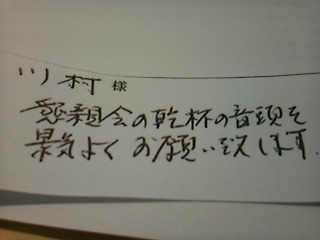 川村様
懇親会の乾杯の音頭を
景気よくお願い致します